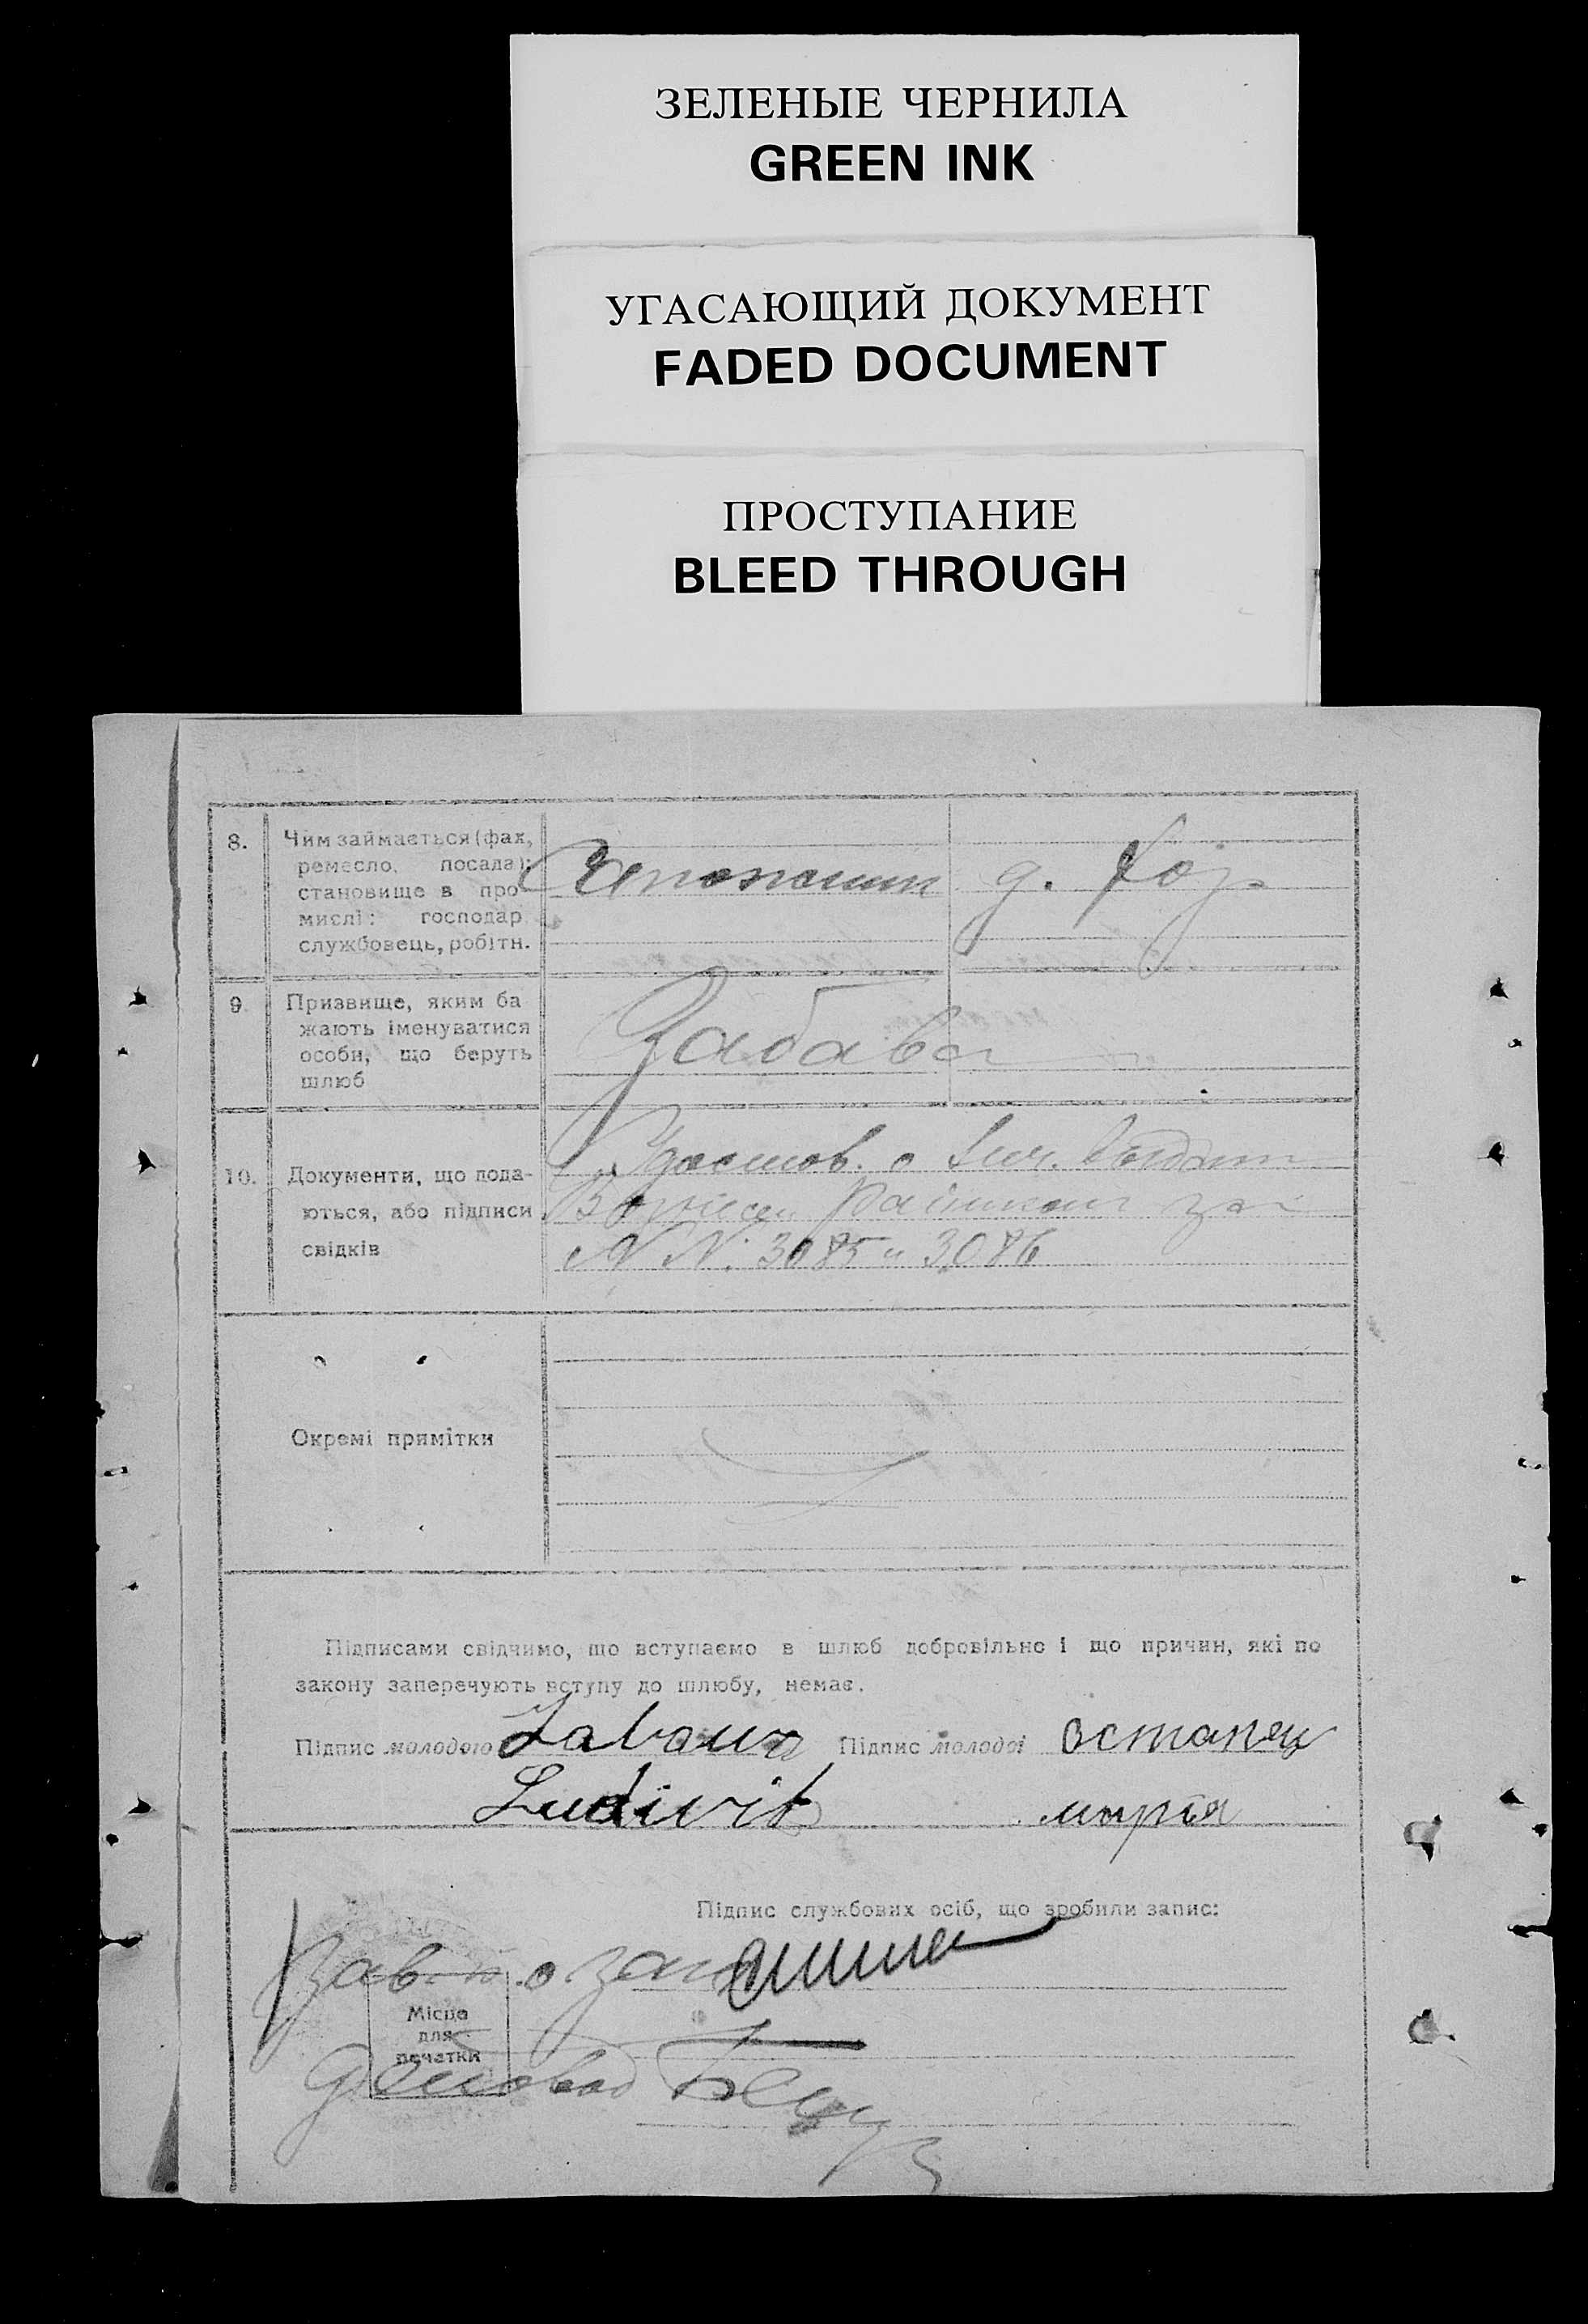 ЗЕЛЕНЫЕ ЧЕРНИЛА
GREEN INK
УГАСАЮЩИЙ ДОКУМЕНТ
FADED DOCUMENT
ПРОСТУПАНИЕ
BLEED THROUGH
8.
Чим займається (фах,
ремесло, посада);
становище в про-
мислі: господар
службовець, робітн.
9.
Призвище, яким ба
жають іменуватися
особи, що беруть
шлюб
Забава
10.
Документи, що пода-
ються, або підписи
свідків
Удостов. о
за
N N: 3085 и 3086
Окремі примітки
Підписами свідчимо, що вступаємо в шлюб добровільно і що причин, які по
закону заперечують вступу до шлюбу, немає.
Підпис молодого Zabava Підпис молодої Остапец
Ludivit мария
Підпис службових осіб, що зробили запис:
Зав.
Місце
для
печатки